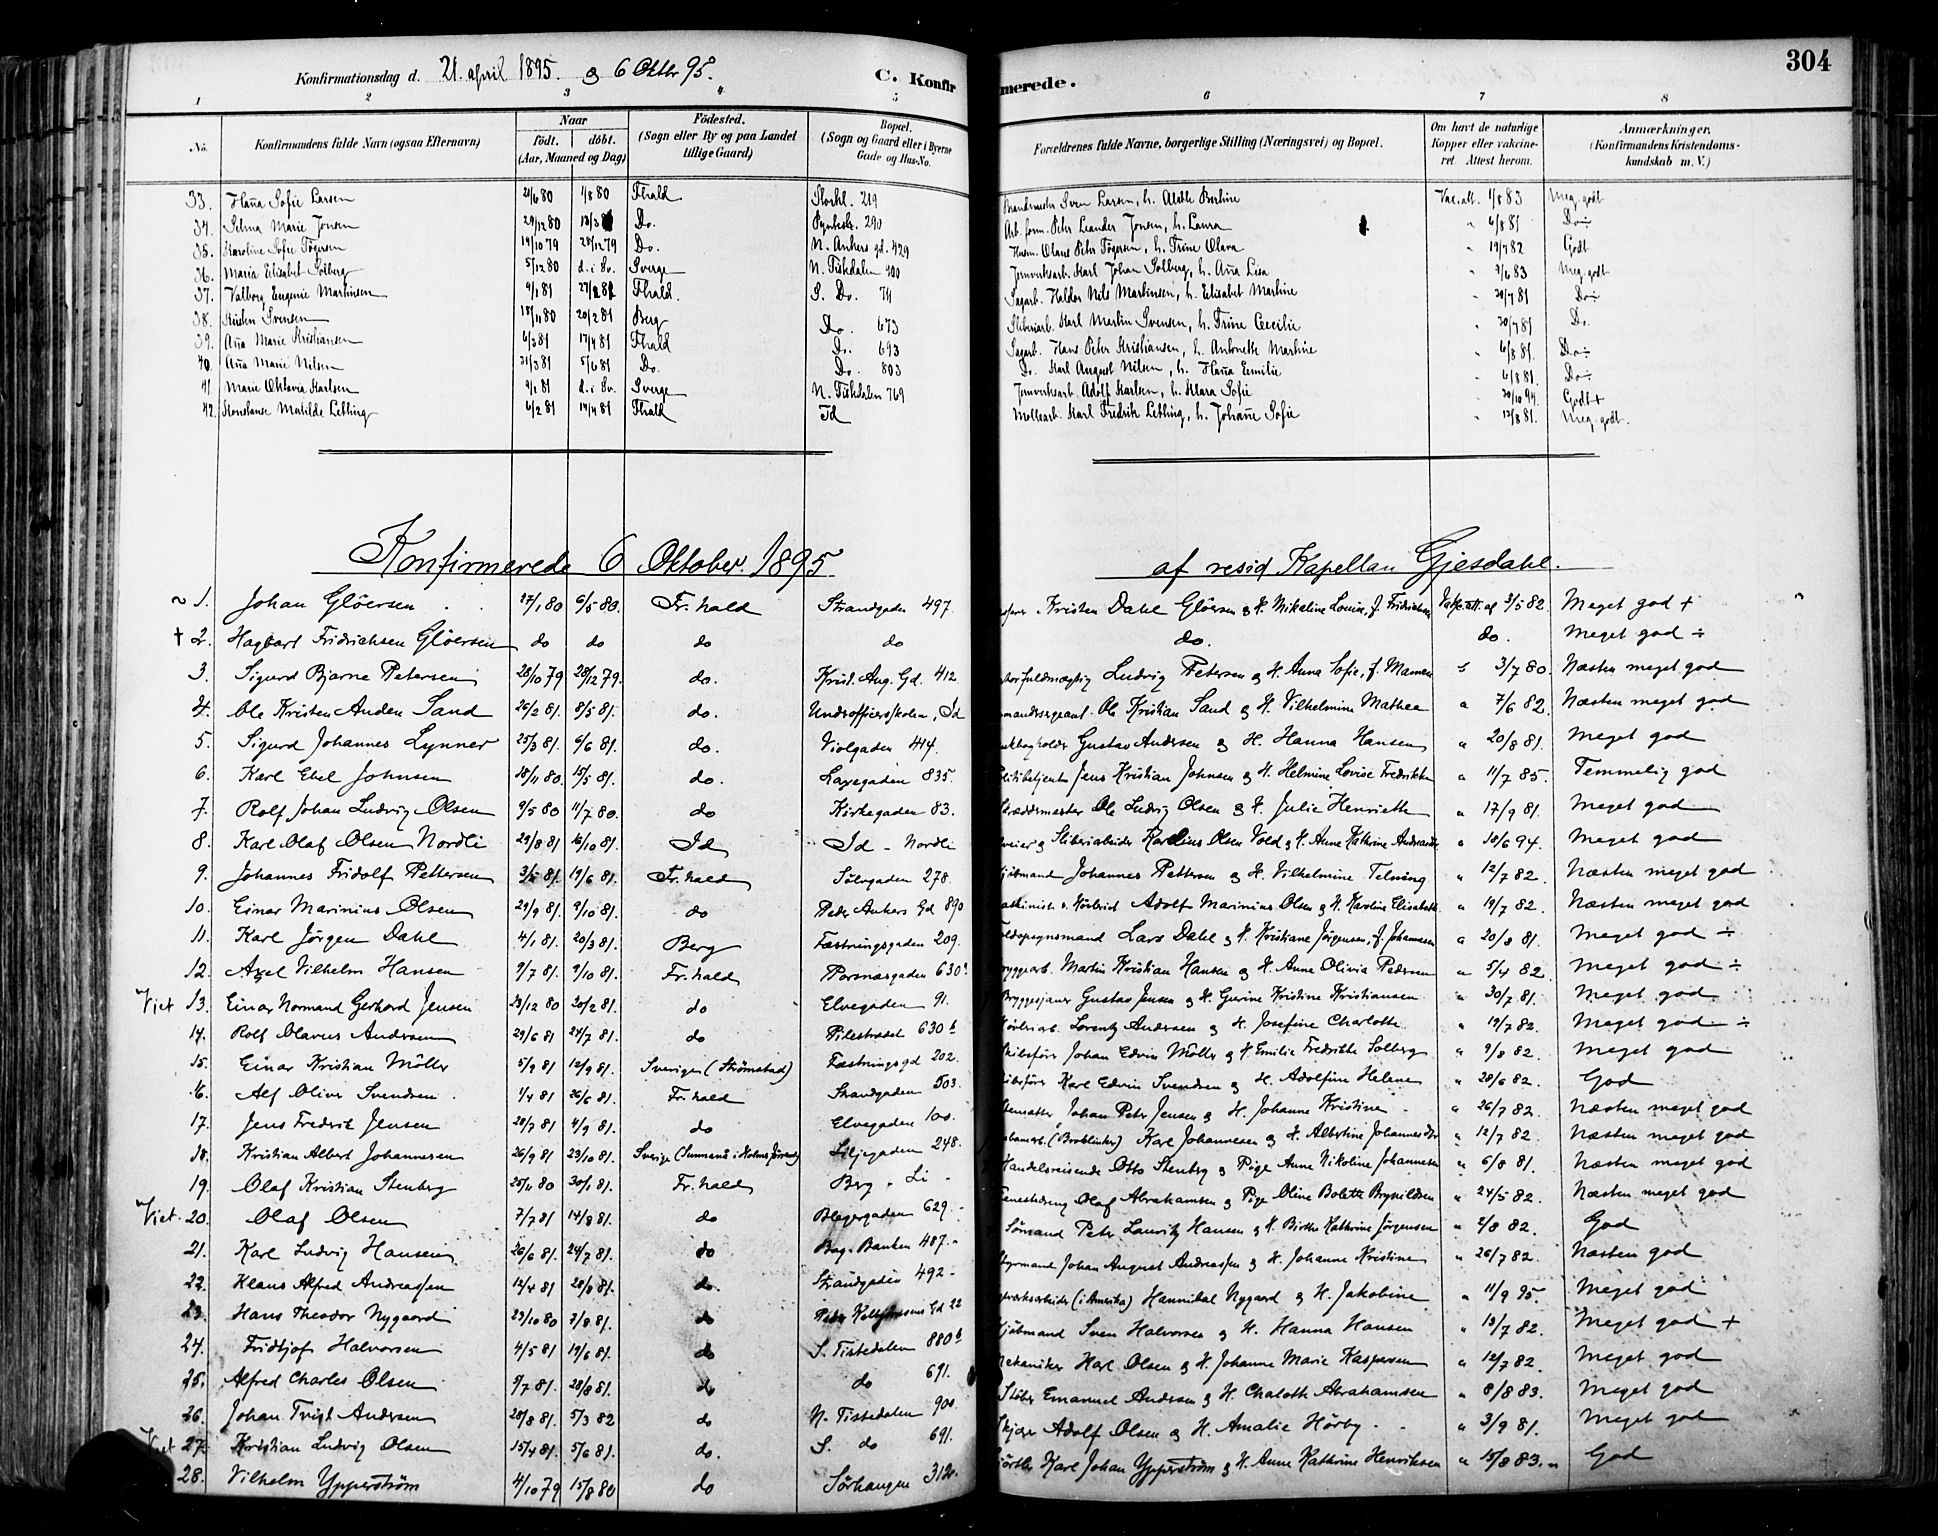 304
Konfirmationsdag d. 21. april 1895. og 6 Oktbr 95. C. Konfirmerede.
1 2 3 4 5 6 7 8
No. Konfirmandens fulde Navn (ogsaa Efternavn) Naar født. døbt. (Aar, Maaned og Dag) Fødested. (Sogn eller By og paa Landet tillige Gaard) Bopæl. (Sogn og Gaard eller i Byerne Gade og Hus-No. Forældrenes fulde Navne, borgerlige Stilling (Næringsvei) og Bopæl. Om havt de naturlige Kopper eller vakcineret. Attest herom. Anmærkninger. (Konfirmandens Kristendomskundskab m. V.)
33. Hanna Sofie Larsen 21/6 80 1/8 80 Fhald Storkl. 219 Brandmester Sven Larsen, h. Alethe Berthine Vac.att. 1/8 83 Meg. godt
34. Selma Marie Jonsen 29/12 80 Do. 290 Arb.form. Peter Leander Jonsen, h. Laura " 6/8 81 Do ÷
35. Karoline Sofie Tøgersen 19/10 79 28/12 79 Do. N. Ankers gd. 429 Husm. Olaus Peter Tøgersen, h. Trine Olava " 19/7 82 Godt
36. Maria Elisabet Solberg 5/12 80 d. i Sv. Sverge N. Tistedalen 900 Jernverksarb. Karl Johan Solberg, h. Anna Lisa " 9/6 83 Meg. godt
37. Valborg Eugenie Martinsen 9/1 81 27/2 81 Fhald. S. Do. 711 Sagarb. Haldor Nils Martinsen, h. Elisabet Martine " 29/7 81 Do ÷
38. Kirsten Svensen 18/11 80 20/2 81 Berg Do. 673 Sliberiarb. Karl Martin Svensen, h. Trine Cecilie " 20/7 81 Do.
39. Anna Marie Kristiansen 6/3 81 17/4 81 Fhald Do. 693 Sagarb. Hans Peter Kristiansen, h. Antonette Martine " 6/8 81. Do ÷
40. Anna Marie Nilsen 21/3 81 5/6 81 Do. Do. 803 Do. Karl August Nilsen, h. Hanna Emilie " 6/8 81. Do ÷
41 Marie Oktavia Karlsen 9/1 81 d. i Sv. Sverge N. Tistedalen 769 Jernverksarb. Adolf Karlsen, h. Klara Sofie " 20/10 94. Godt +
42. Konstanse Matilde Letting 6/2 81 14/4 81 Fhald Id Møllearb. Karl Fredrik Letting, h. Johanne Sofie " 12/8 81. Meg. godt.
Konfirmerede 6 Oktober 1895 af resid. Kapellan Gjesdahl.
~ 1. Johan Gløersen 17/1 80 6/5 80. Fr.hald Strandgaden 497. Kristen Dahl Gløersen & H. Mikaline Lovise, f. Fridrichsen Vakc.att. af 3/5 82 Meget god +
† 2. Hagbart Fridrichsen Gløersen do do do do do. do. Meget god ÷
3. Sigurd Bjarne Petersen 28/10 79 28/12 79. do. Krist. Aug. Gd. 412 Ludvig Petersen & H. Anna Sofie, f. Mamen " 3/7 80. Næsten meget god
4. Ole Kristen Anden Sand 26/2 81. 8/5 81. do. Underofficersskolen, Id Ole Kristian Sand & H. Vilhelmine Mathea " 7/6 82. Næsten meget god
5. Sigurd Johannes Lynner 25/3 81. 6/6 81. do. Violgaden 414. Gustav Andersen & H. Hanna Hansen " 20/8 81. Meget god
6. Karl Ebel Johnsen 18/11 80. 15/5 81. do. Laxegaden 835 Politibetjent Jens Kristian Johnsen & H. Helmine Lovise Fredrikke " 11/7 85. Temmelig god
7. Rolf Johan Ludvig Olsen 9/5 80 11/7 80. do Kirkegaden 83. Skræddermester Ole Ludvig Olsen & H. Julie Henriette " 17/9 81. Meget god
8. Karl Olaf Olsen Nordli 29/8 81 16/10 81. Id Id - Nordli Sliberiarbeider Karelius Olsen Vold & H. Anne Kathrine Andreasd. " 10/6 94. Meget god
9. Johannes Fridolf Pettersen 3/5 81. 19/6 81. Fr.hald Sølvgaden 278. Johannes Pettersen & H. Vilhelmine Telning " 12/7 82. Næsten meget god
10. Einar Marinius Olsen 29/9 81. 9/10 81. do Peder Ankers Gd 890 Adolf Marinius Olsen & H. Karoline Elisabeth " 19/7 82. Næsten meget god
11. Karl Jørgen Dahl 4/1 81. 20/3 81. Berg Fæstningsgaden 209. Lars Dahl & H. Kristiane Jørgensen, f. Johannesen " 20/8 81. Meget god ÷
12. Axel Vilhelm Hansen 9/7 81. 9/10 81. Fr.hald Porsnæsgaden 630. Bryggearb. Martin Kristian Hansen & H. Anne Olivia Pedersen " 5/4 82. Meget god ÷
Viet 13. Einar Normand Gerhard Jensen 23/12 80 20/2 81. do Elvegaden 91. Bryggesjauer Gustav Jensen & H. Gurine Kristine Kristiansen " 30/7 81. Meget god
14. Rolf Olavus Andersen 29/6 81 24/7 81. do Pilestrædet 630 b Lorentz Andersen & H. Josefine Charlotte " 19/7 82. Meget god ÷
15. Einar Kristian Møller 5/9 81 12/9 81. Sverige (Strømstad) Fæstningsgd 202. Skibsfører Johan Edvin Møller & H. Emilie Fredrikke Solberg " 9/8 82. Meget god
16. Alf Oliver Svendsen 1/4 81 26/6 81. Fr.hald Strandgaden 503. Skibsfører Karl Edvin Svendsen & H. Adolfine Helene " 28/6 82. God
17. Jens Fredrik Jensen 20/7 81 4/9 81. do Elvegaden 100. Johan Peter Jensen & H. Johanne Kristine " 26/7 82. Næsten meget god
18. Kristian Albert Johannesen 26/9 81 23/10 81. Liljegaden 248. Karl Johannesen & H. Albertine Johannesdtr " 12/7 82. Næsten meget god
19. Olaf Kristian Stenberg 25/11 80 30/1 81. Fr.hald Berg - Li - Handelsreisende Otto Stenberg & Pige Anne Nikoline Johannesen " 6/8 81. Næsten meget god
Viet. 20. Olaf Olsen 7/7 81 14/8 81. do Blegergaden 629. Tjenestedreng Olaf Abrahamsen & Pige Oline Bolette Brynildsen " 24/5 82. Næsten meget god
21. Karl Ludvig Hansen 26/6 81. 24/7 81. do Bag-Banken 487. Sømand Peter Lauritz Hansen & H. Birthe Kathrine Jørgensen " 2/8 82. God
22. Klaus Alfred Andreassen 12/4 81 28/8 81. do. Strandgaden 492 - Styrmand Johan August Andreassen & H. Johanne Kristine " 26/7 82. Næsten god
23. Hans Theodor Nygaard 23/10 80 2/8 81. do Gd 22 (i Amerika) Hannibal Nygaard & H. Jakobine " 11/9 95. Meget god
24. Fridtjof Halvorsen 4/5 81 19/6 81. do S. Tistedalen 880 b Sven Halvorsen & H. Hanna Hansen " 13/7 82. Meget god +
25. Alfred Charles Olsen 9/7 81. 28/8 81. do do 691. Mekaniker Karl Olsen & H. Johanne Marie Kaspersen " 12/7 82. Meget god
26. Johan Andersen 20/8 81. 5/3 82 do N. Tistedalen 900. Støber Emanuel Andersen & H. Chalotte Abrahamsen " 8/8 83. Meget god
Viet 27. Kristian Ludvig Olsen 15/4 81. 5/6 81. do. S. do 691. Adolf Olsen & H. Amalie Hørby. " 3/9 81. Meget god
28. Vilhelm Ypperstrøm 4/10 79 15/8 80 do Sørhaugen 312. Karl Johan Ypperstrøm & H. Anne Kathrine Henriksen " 15/8 83. God